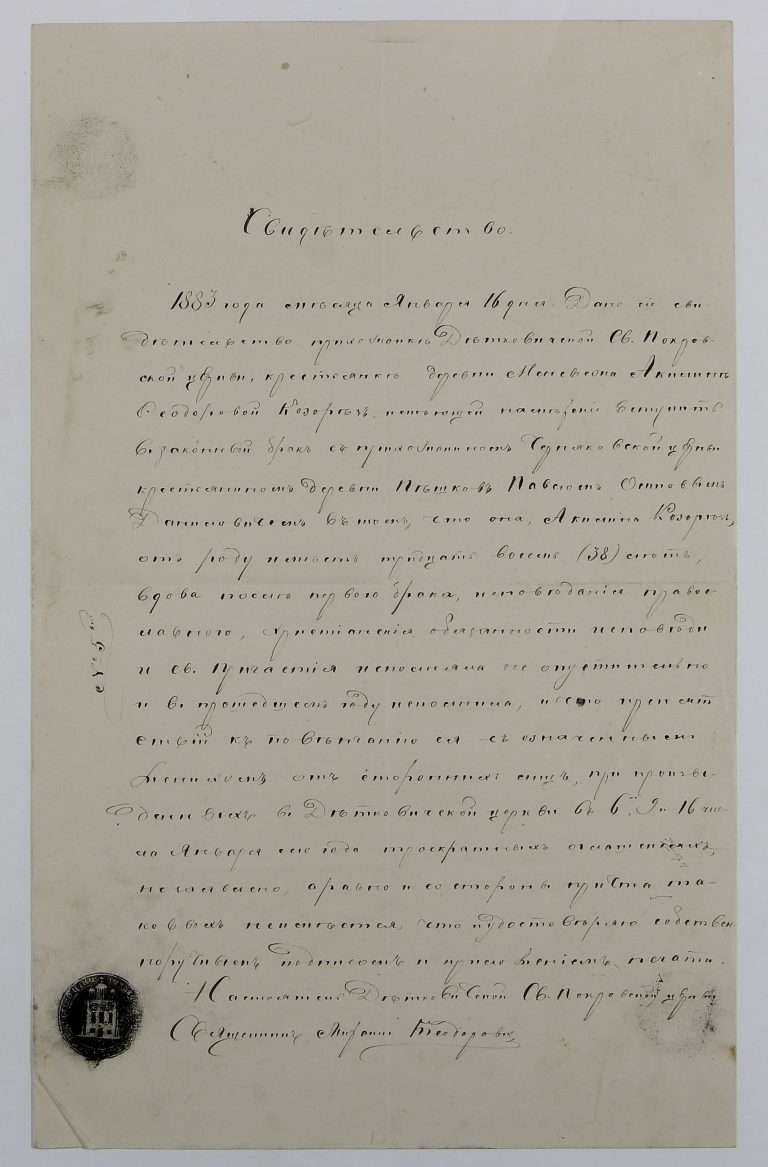 Свидѣтельство.
1883 года мѣсяца Января 16 дня. Дано сіе сви-
дѣтельство прихожанкѣ Дѣтковичской Св. Покров-
ской церкви, крестьянкѣ деревни Акилинѣ
Ѳеодоровой Козоргъ, имѣющей намѣреніе вступить
въ законный бракъ съ прихожаниномъ церкви
крестьяниномъ деревни Павломъ Осиповымъ
Даниловичемъ въ томъ, что она, Акилина Козоргъ,
отъ роду имѣетъ тридцать восемь (38) лѣтъ,
вдова послѣ перваго брака, исповѣданія правос-
лавнаго, христіанскія обязанности исповѣди
и св. Причастія исполняла не опустительно
и въ прошедшемъ году исполнила, и что препят
ствій къ повѣнчанію ея съ означеннымъ
женихомъ отъ стороннихъ лицъ, при произве-
денныхъ въ Дѣтковичской церкви въ 6, 9 и 16 чис-
ла Января сего года троекратныхъ оглашеніяхъ,
не заявлено, а равно и со стороны причта та-
ковыхъ неимѣется, что и удостовѣряю собствен
норучнымъ подписомъ и приложеніемъ печати.
Настоятель Дѣтковичской Св. Покровской церкви
Священникъ Ѳеодоровъ